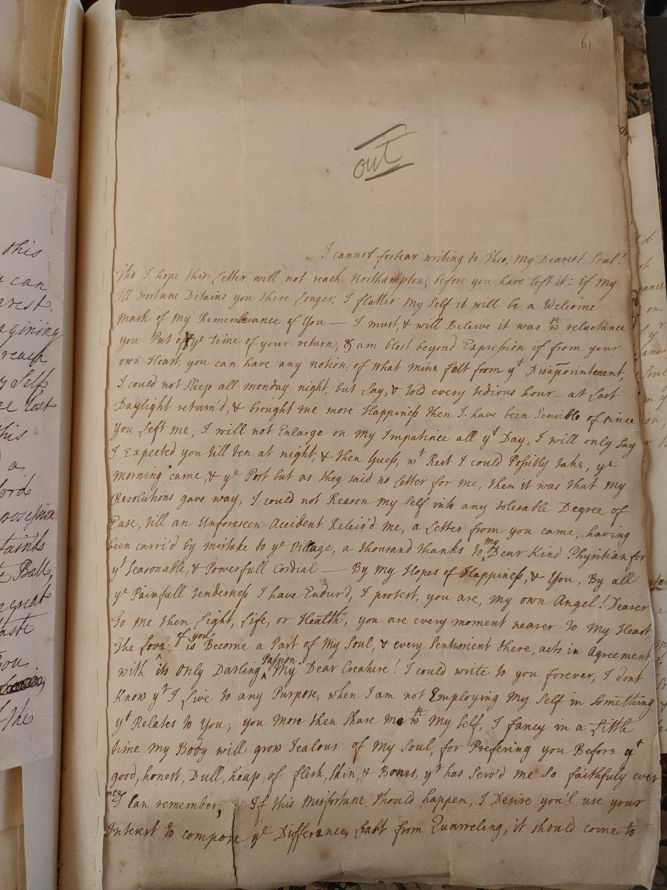 61
out
I cannot forbear writing to Theo, My Dearest Soul!
Tho I hope this Letter will not reach Northampton, before you have left it: if my
Ill Fortune Detains you there Longer, I flatter My Self it will be a Welcome
mark of my Remembrance of You — I must, & will Beleive it was wth reluctance
you Put of ye time of your return, & am blest beyond Expression if from your
own Heart, you can have any notion, of what mine felt from yt Disapointment,
I could not Sleep all monday night, but Lay, & told every tedious hour — at Last
Daylight return'd, & brought me more Happiness then I have been Sensible of since
You Left me, I will not Enlarge on My Impatince all yt Day, I will only Say
I Expected you till ten at night, & then Guess, wt Rest I could Possibly take, ye
morning came, & ye Post but as they said no Letter for me, then it was that my
Resolutions gave way, I could not Reason my Self into any tolerable Degree of
Ease, till an Unforeseen Accident Releiv'd me, a Letter from you came, having
been carri'd by mistake to ye Village, a thousand thanks to my Dear Kind Physitian for
yt Seasonable, & Powerfull Cordial — By my Hopes of Happiness, & You, By all
ye Painfull Tenderness I have Endur'd, I protest, you are, my own Angel! Dearer
to me then Light, Life, or Health, you are every moment nearer to My Heart
The Love of you is Become a Part of My Soul, & every Sentiment there, acts in Agreement
with its Only Darling Passion My Dear Creature! I could write to you forever, I dont
Know yt I Live to any Purpose, when I am not Employing My Self in something
yt Relates to You, you More then Share me wth My Self, I fancy in a Little
time My Body will grow Jealous of My Soul, for Prefering you Before yt
good, honest, Dull, heap, of flesh, Skin, & Bones, yt has Serv'd me So faithfully ever
Can remember; If this Misfortune Should happen, I Desire you'l use your
Interest to compose ye Difference, Last from Quarreling, it should come to
this
can